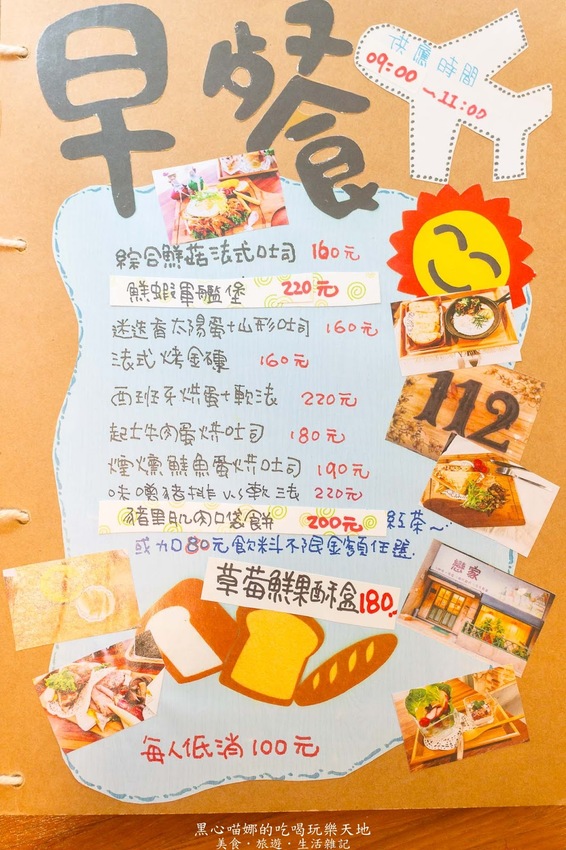 早餐
供應時間
09:00~11:00
綜合鮮菇法式吐司 160元
鮮蝦軍艦堡 220元
迷迭香太陽蛋+山形吐司 160元
法式烤金磚 160元
西班牙烘蛋+軟法 220元
起士牛肉蛋烤吐司 180元
煙燻鮭魚蛋烤吐司 190元
味噌豬排 v.s 軟法 220元
豬里肌肉口袋餅 200元
紅茶~
或加80元飲料不限金額任選.
草莓鮮果酥盒 180.
每人低消100元
112
戀家
黑心喵娜的吃喝玩樂天地
美食‧旅遊‧生活雜記